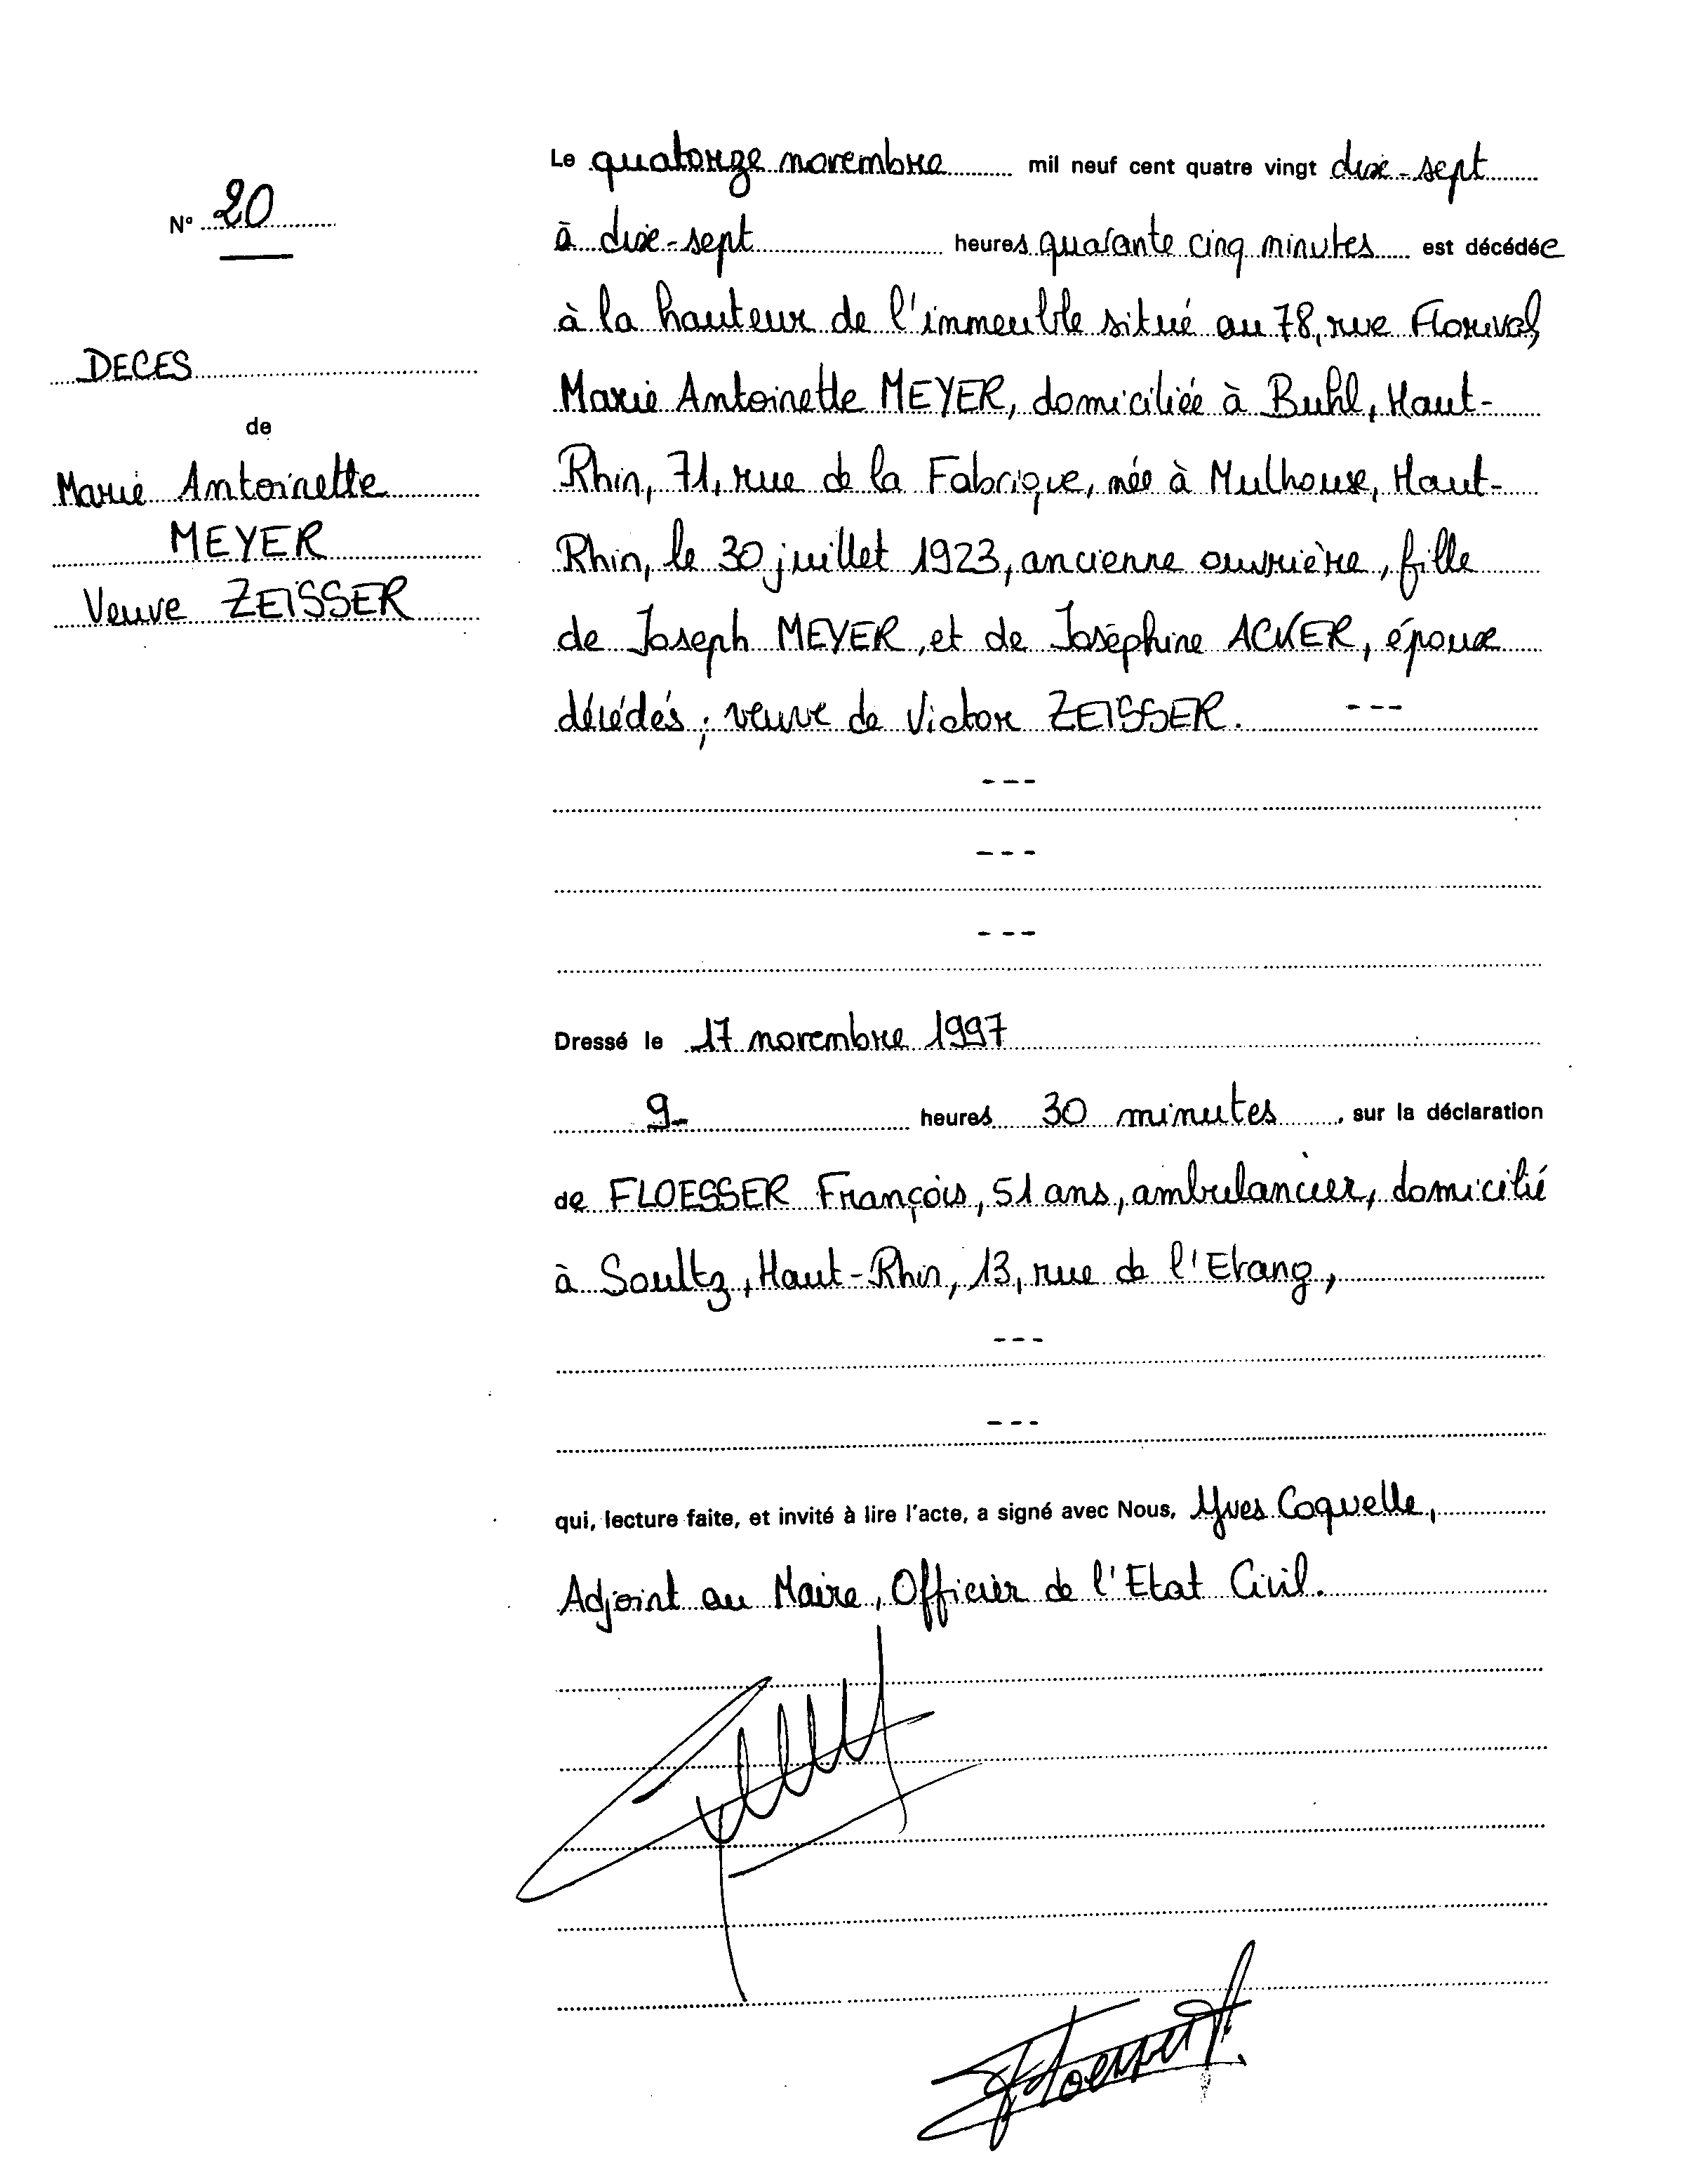 N° 20
DECES
de
Marie Antoinette
MEYER
Veuve ZEISSER
Le quatorze novembre mil neuf cent quatre vingt dix-sept
à dix-sept heures quarante cinq minutes est décédée
à la hauteur de l'immeuble situé au 78, rue Florival,
Marie Antoinette MEYER, domiciliée à Buhl, Haut-
Rhin, 71, rue de la Fabrique, née à Mulhouse, Haut-
Rhin, le 30 juillet 1923, ancienne ouvrière, fille
de Joseph MEYER, et de Joséphine ACKER, époux
décédés ; veuve de Victor ZEISSER. ---
---
---
---
Dressé le 17 novembre 1997
9- heures 30 minutes, sur la déclaration
de FLOESSER François, 51 ans, ambulancier, domicilié
à Soultz, Haut-Rhin, 13, rue de l'Etang,
---
---
qui, lecture faite, et invité à lire l'acte, a signé avec Nous, Yves Coquelle,
Adjoint au Maire, Officier de l'Etat Civil.